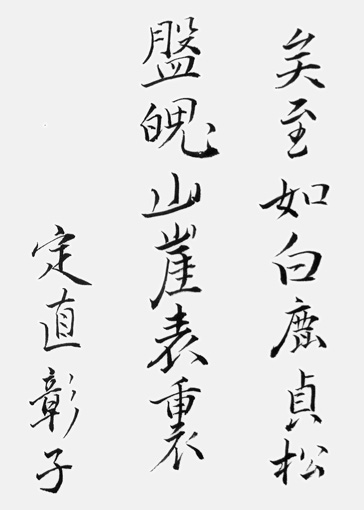 矣至如白鹿貞松
盤魄山崖表裏
定直彰子